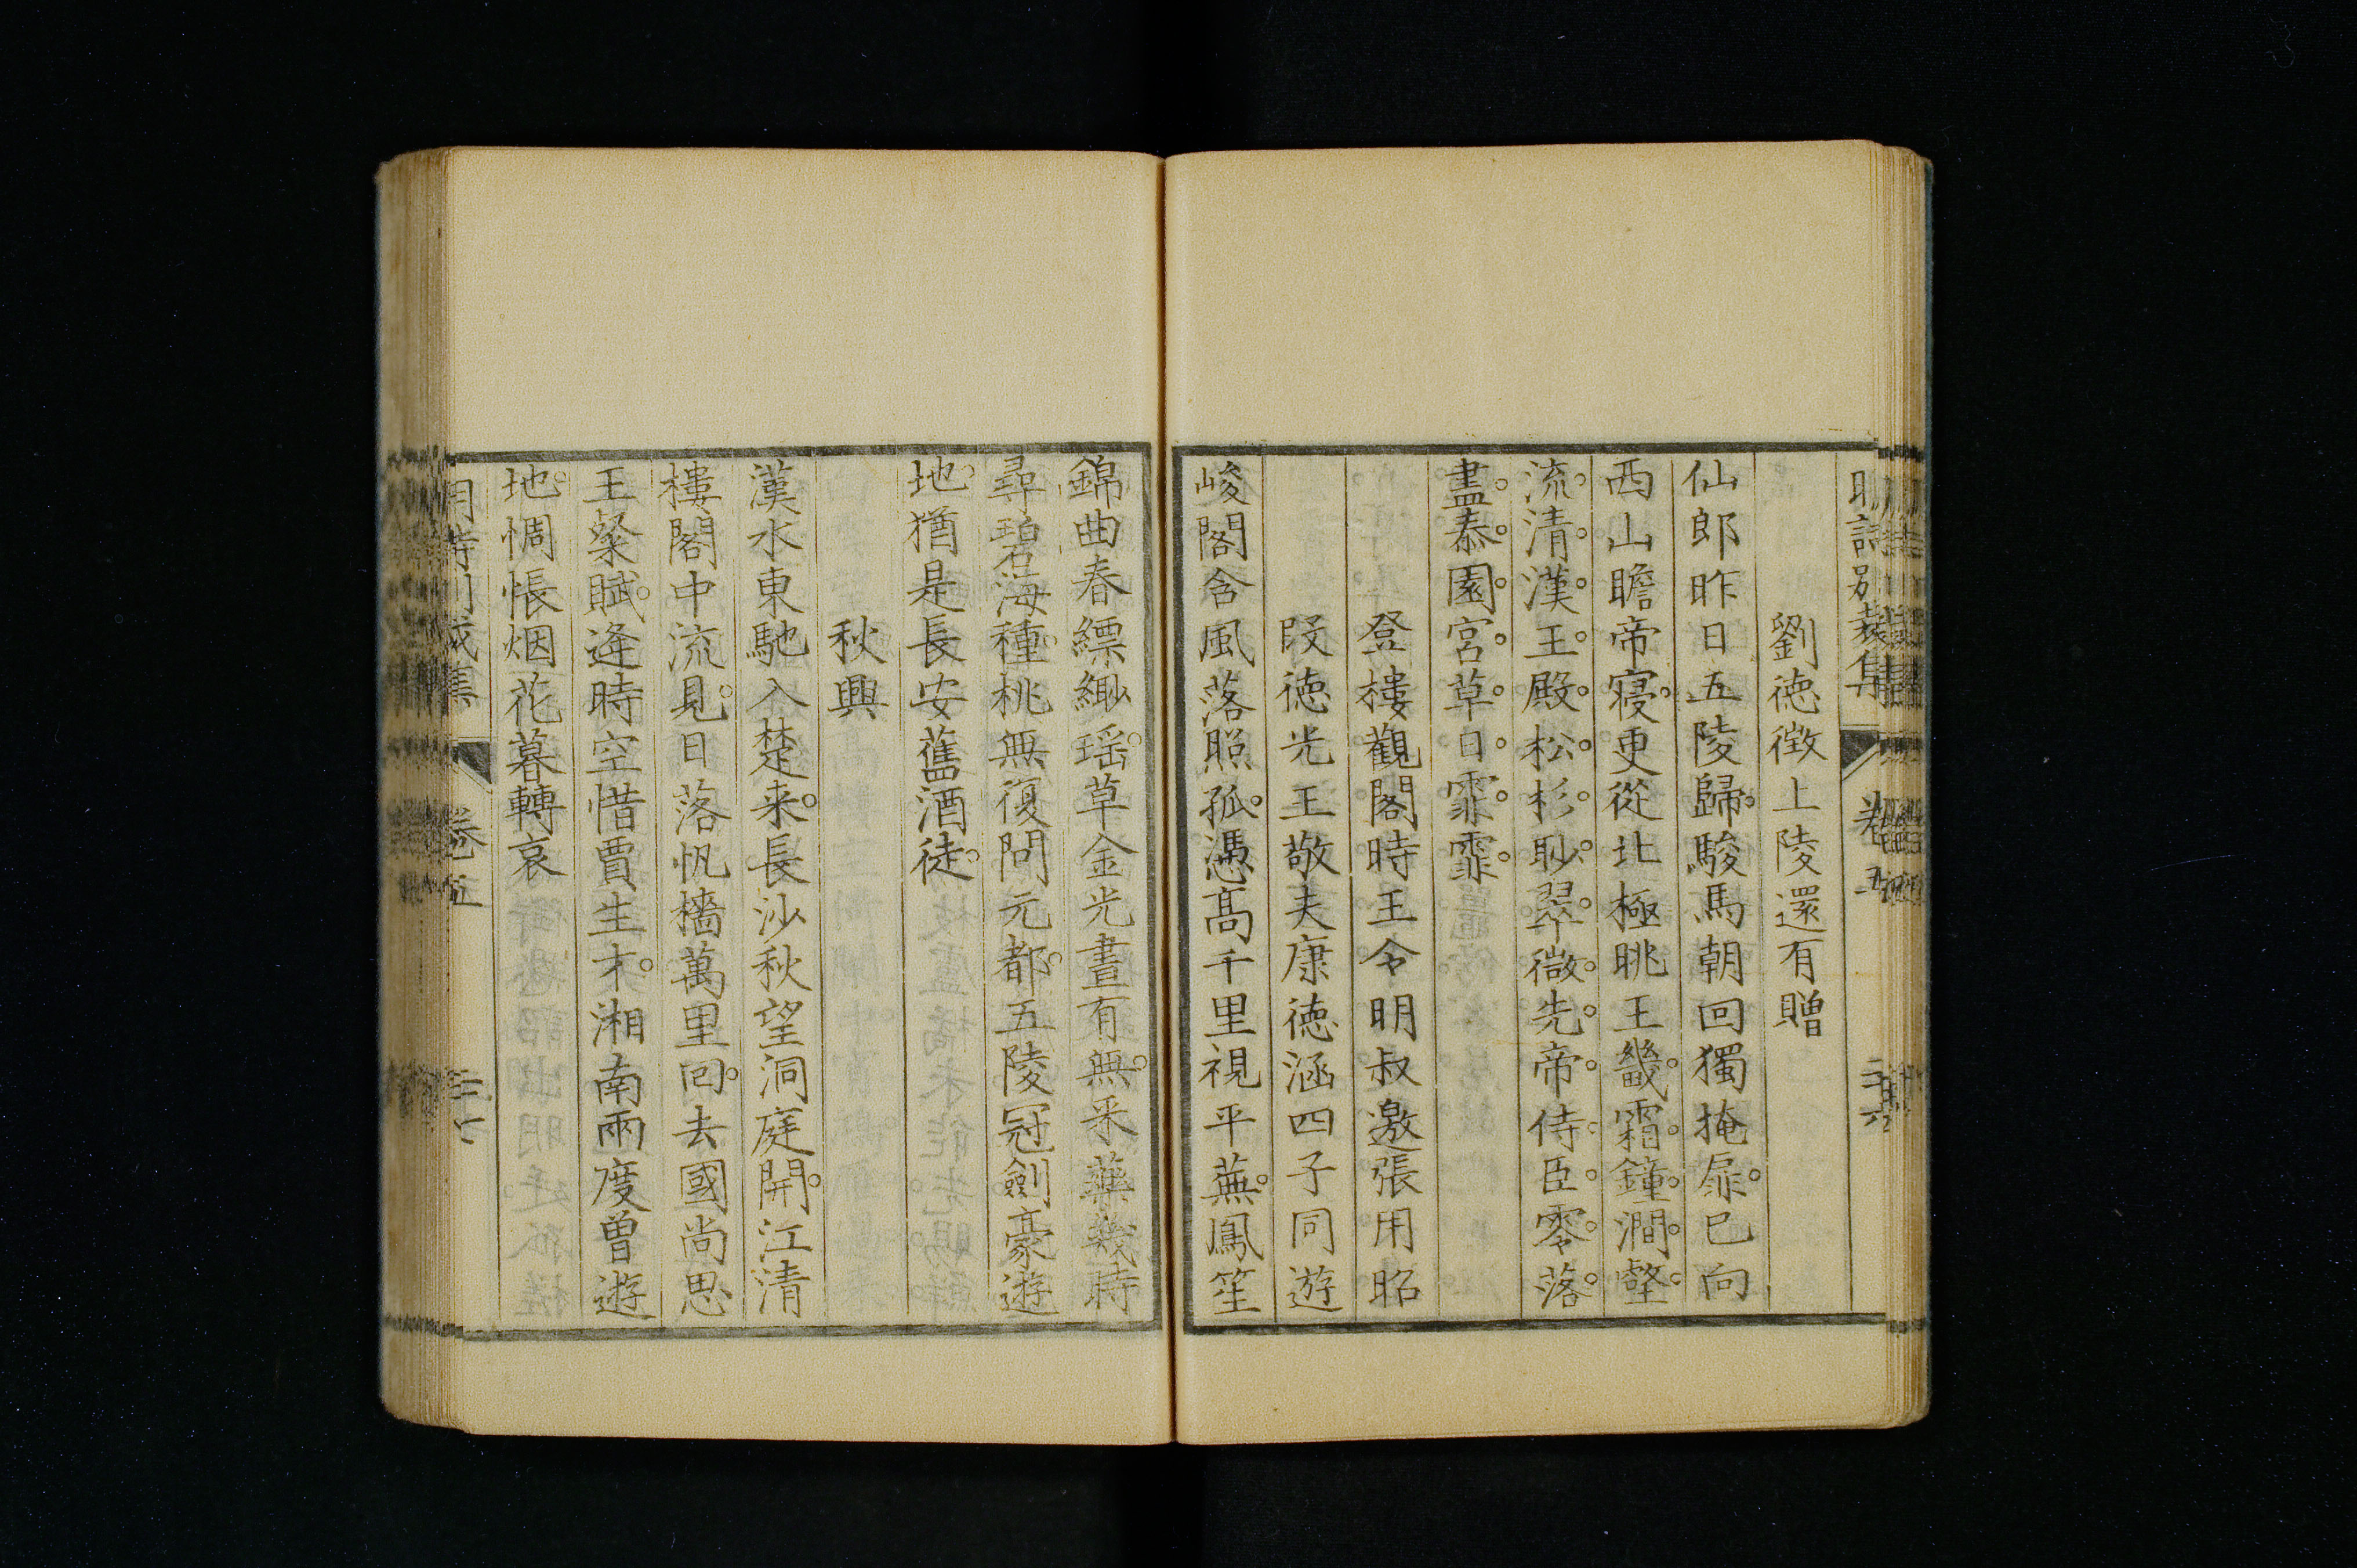 明詩別裁集 卷五 三六
劉徳徴上陵還有贈
仙郎昨日五陵歸駿馬朝回獨掩扉已向
西山瞻帝寝更從北極眺王畿霜鐘澗壑
流清漢玉殿松杉耿翠微先帝侍臣零落
盡泰園宮草日霏霏
登樓觀閣時王令明叔邀張用昭
段徳光王敬夫康徳涵四子同遊
峻閣含風落照孤憑高千里視平蕪鳳笙
錦曲春縹緲瑶草金光晝有無采藥幾時
尋碧海種桃無復問元都五陵冠劍豪遊
地猶是長安舊酒徒
秋興
漢水東馳入楚来長沙秋望洞庭開江清
樓閣中流見日落帆檣萬里回去國尚思
王粲賦逢時空惜賈生才湘南兩度曾遊
地惆悵烟花暮轉哀
卷五